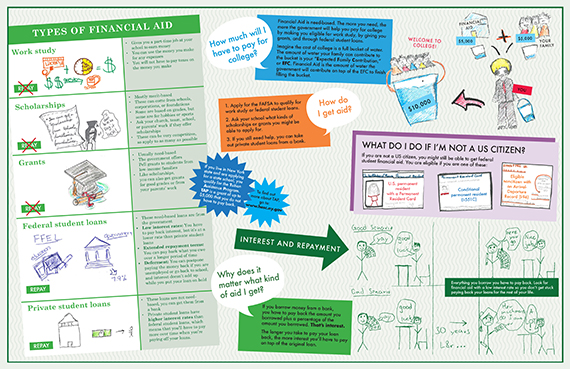 TYPES OF FINANCIAL AID
Work study
REPAY
• Gives you a part-time job at your
school to earn money
• You can use the money you make
for any expense
• You will not have to pay taxes on
the money you make
Scholarships
REPAY
• Mostly merit-based
• They can come from schools,
corporations, or foundations
• Some are based on grades, but
some are for hobbies or sports
• Ask your church, trust, school,
or parents' work if they offer
scholarships
• There can be very competitive,
so apply to as many as possible
Grants
REPAY
• Usually need-based
• The government offers
Pell grants to students from
low-income families
• Like scholarships,
you can also get grants
for good grades or from
your parents' work
Federal student loans
FFEL
REPAY
• These need-based loans are from
the government
• Low interest rates: You have
to pay back interest, but it's at a
lower rate than private student
loans
• Extended repayment terms:
You can pay back what you owe
over a longer period of time
• Deferment: You can postpone
paying the money back if you are
unemployed or go back to school,
and interest doesn't add up
while you put your loan on hold
Private student loans
REPAY
• These loans are not need-
based, you can get them from
a bank
• Private student loans have
higher interest rates than
federal student loans, which
means that you'll have to pay
more over time when you're
paying off your loans
How much will I
have to pay for
college?
Financial Aid is need-based. The more you need, the
more the government will help you pay for college
by making you eligible for work study, by giving you
grants, and through federal student loans.
Imagine the cost of college is a full bucket of water.
The amount of water your family can contribute to
the bucket is your "Expected Family Contribution,"
or EFC. Financial Aid is the amount of water the
government will contribute on top of the EFC to finish
filling the bucket.
WELCOME TO
COLLEGE!
$10,000
FINANCIAL
AID
$5,000
$5,000
YOUR
FAMILY
YOU
1. Apply for the FAFSA to qualify for
work study or federal student loans.
2. Ask your school what kinds of
scholarships or grants you might be
able to apply for.
3. If you still need help, you can take
out private student loans from a bank.
How do
I get aid?
WHAT DO I DO IF I'M NOT A US CITIZEN?
If you are not a US citizen, you might still be able to get federal
student financial aid. You are eligible if you are one of these:
U.S. permanent
resident with
a Permanent
Resident Card
Conditional
permanent resident
(I-551C)
Eligible
noncitizen with
an Arrival-
Departure
Record (I-94)
INTEREST AND REPAYMENT
Why does it
matter what kind
of aid I get?
If you borrow money from a bank,
you have to pay back the amount you
borrowed plus a percentage of the
amount you borrowed. That's interest.
The longer you take to pay your loan
back, the more interest you'll have to pay
on top of the original loan.
good
luck
good
luck
30 years
Everything you borrow you have to pay back. Look for
financial aid with a low interest rate so you don't get stuck
paying back your loans for the rest of your life.